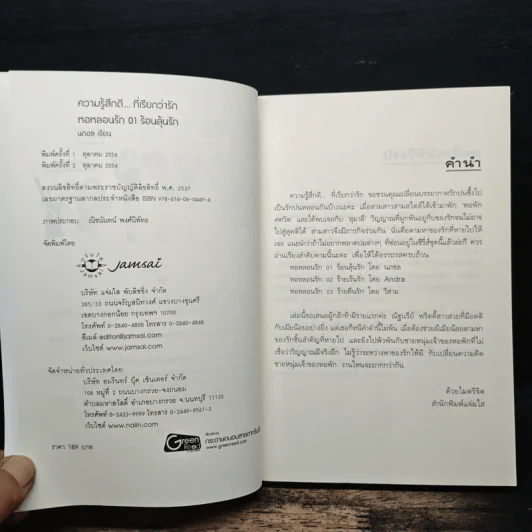 ความรู้สึกดี... ที่เรียกว่ารัก
หอหลอนรัก 01 ร้อนลุ้นรัก
นภชล เขียน
พิมพ์ครั้งที่ 1 ตุลาคม 2554
พิมพ์ครั้งที่ 2 ตุลาคม 2554
สงวนลิขสิทธิ์ตามพระราชบัญญัติลิขสิทธิ์ พ.ศ. 2537
เลขมาตรฐานสากลประจำหนังสือ ISBN 978-616-06-0449-4
ภาพประกอบ ณิชนันทน์ พงศ์นิพัทธ
จัดพิมพ์โดย
jamsai
บริษัท แจ่มใส พับลิชชิ่ง จำกัด
285/33 ถนนจรัญสนิทวงศ์ แขวงบางขุนศรี
เขตบางกอกน้อย กรุงเทพฯ 10700
โทรศัพท์ 0-2840-4800 โทรสาร 0-2840-4848
อีเมล์ editor@jamsai.com
เว็บไซต์ www.jamsai.com
จัดจำหน่ายทั่วประเทศโดย
บริษัท อมรินทร์ บุ๊ค เซ็นเตอร์ จำกัด
108 หมู่ที่ 2 ถนนบางกรวย-จงถนอม
ตำบลมหาสวัสดิ์ อำเภอบางกรวย จ.นนทบุรี 11130
โทรศัพท์ 0-2423-9999 โทรสาร 0-2449-9561-3
เว็บไซต์ www.naiin.com
ราคา 189 บาท
Green
Read
กระดาษถนอมสายตา
www.greenread.com
คำนำ
ความรู้สึกดี... ที่เรียกว่ารัก ขอชวนคุณเปลี่ยนบรรยากาศรักปนซึ้งไป
เป็นรักปนหลอนกันบ้างนะคะ เมื่อสามสาวสามสไตล์ได้เข้ามาพัก 'หอพัก
และได้พบเจอกับ 'สุมาลี' วิญญาณที่ผูกพันอยู่กับของรักจนไม่อาจ
ไปสู่สุคติได้ สามสาวจึงมีภารกิจร่วมกัน นั่นคือตามหาของรักที่หายไปให้
เจอ
อ่านเรียงลำดับตามนี้นะคะ เพื่อให้ได้อรรถรสครบถ้วน
หอหลอนรัก 01 ร้อนลุ้นรัก โดย นภชล
หอหลอนรัก 02 ร้ายเร้นรัก โดย Andra
หอหลอนรัก 03 ร้ายตื๊นรัก โดย วีสาม
เล่มนี้ขอเสนอผู้กล้าท้าผีรายแรกค่ะ ณัฐนรีย์ พริตตี้สาวสวยที่มีอดีต
กับเมียน้อยอย่างยิ่ง แต่เธอก็หนีคำคำนี้ไม่พ้น เมื่อต้องช่วยผีเมียน้อยตามหา
ของรักชิ้นสำคัญที่หายไป และยังไปพัวพันกับชายหนุ่มเจ้าของหอพักที่ไม่
เชื่อว่าวิญญาณมีจริงอีก ไม่รู้ว่าระหว่างหาของรักให้ผี กับเปลี่ยนความคิด
ชายหนุ่มเจ้าของหอพัก งานไหนจะยากกว่ากัน
ด้วยไมตรีจิต
สำนักพิมพ์แจ่มใส